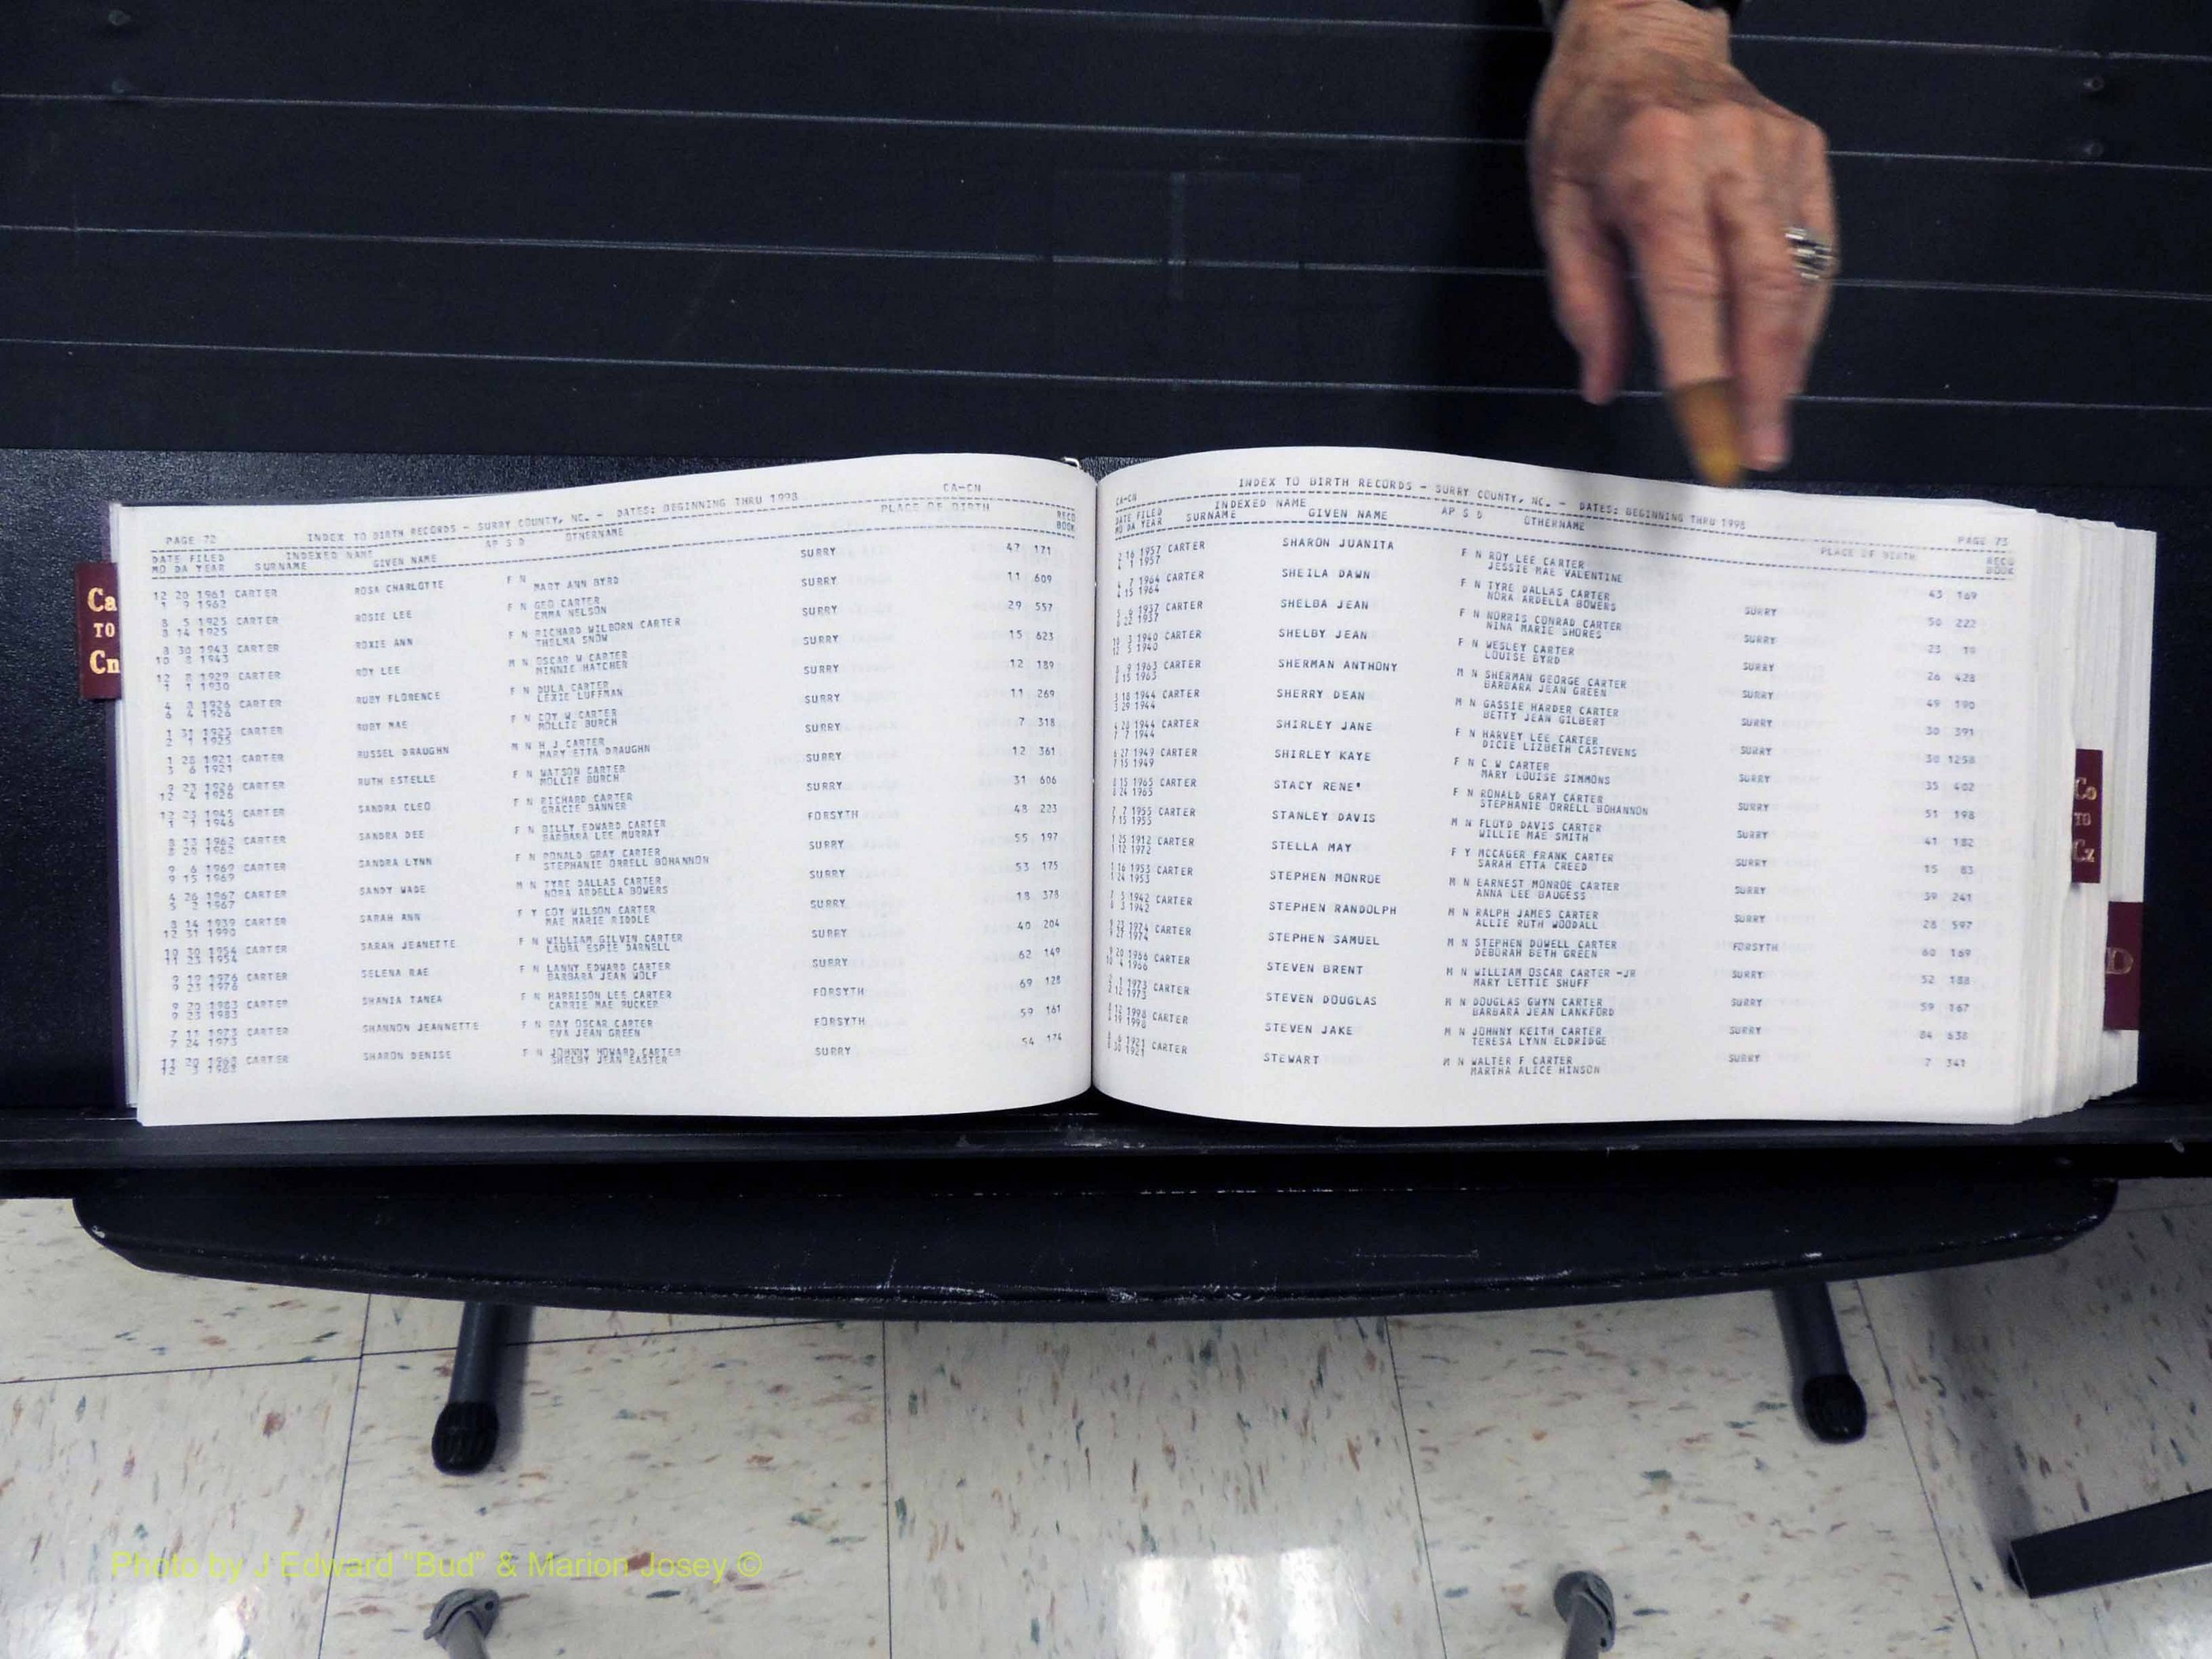 Ca
TO
Cn
PAGE 72 INDEX TO BIRTH RECORDS - SURRY COUNTY, NC. - DATES: BEGINNING THRU 1998 CA-CN
DATE FILED INDEXED NAME AP S D OTHERNAME PLACE OF BIRTH RECD
MO DA YEAR SURNAME GIVEN NAME BOOK
12 20 1961 CARTER ROSA CHARLOTTE F N SURRY 47 171
1 9 1962 MARY ANN BYRD
8 5 1925 CARTER ROSIE LEE F N GEO CARTER SURRY 11 609
8 14 1925 EMMA NELSON
8 30 1943 CARTER ROXIE ANN F N RICHARD WILBORN CARTER SURRY 29 557
10 8 1943 THELMA SNOW
12 8 1929 CARTER ROY LEE M N OSCAR W CARTER SURRY 15 623
1 1 1930 MINNIE HATCHER
4 8 1926 CARTER RUBY FLORENCE F N DULA CARTER SURRY 12 189
6 4 1926 LEXIE LUFFMAN
1 31 1925 CARTER RUBY MAE F N COY W CARTER SURRY 11 269
2 1 1925 MOLLIE BURCH
1 28 1921 CARTER RUSSEL DRAUGHN M N H J CARTER SURRY 7 318
3 6 1921 MARY ETTA DRAUGHN
9 23 1926 CARTER RUTH ESTELLE F N WATSON CARTER SURRY 12 361
12 4 1926 MOLLIE BURCH
12 23 1945 CARTER SANDRA CLEO F N RICHARD CARTER SURRY 31 606
1 1 1946 GRACIE BANNER
8 13 1962 CARTER SANDRA DEE F N BILLY EDWARD CARTER FORSYTH 48 223
8 20 1962 BARBARA LEE MURRAY
9 6 1969 CARTER SANDRA LYNN F N RONALD GRAY CARTER SURRY 55 197
9 15 1969 STEPHANIE ORRELL BOHANNON
4 26 1967 CARTER SANDY WADE M N TYRE DALLAS CARTER SURRY 53 175
5 2 1967 NORA ARDELLA BOWERS
8 14 1939 CARTER SARAH ANN F Y COY WILSON CARTER SURRY 18 378
12 31 1990 MAE MARIE RIDDLE
10 30 1954 CARTER SARAH JEANETTE F N WILLIAM GILVIN CARTER SURRY 40 204
11 23 1954 LAURA ESPIE DARNELL
9 19 1976 CARTER SELENA RAE F N LANNY EDWARD CARTER SURRY 62 149
9 23 1976 BARBARA JEAN WOLF
9 20 1983 CARTER SHANIA TANEA F N HARRISON LEE CARTER FORSYTH 69 128
9 23 1983 CARRIE MAE RUCKER
7 11 1973 CARTER SHANNON JEANNETTE F N RAY OSCAR CARTER FORSYTH 59 161
7 24 1973 EVA JEAN GREEN
11 20 1968 CARTER SHARON DENISE F N JOHNNY HOWARD CARTER SURRY 54 174
12 3 1968 SHELBY JEAN EASTER
CA-CN INDEX TO BIRTH RECORDS - SURRY COUNTY, NC. - DATES: BEGINNING THRU 1998 PAGE 73
DATE FILED INDEXED NAME AP S D OTHERNAME PLACE OF BIRTH RECD
MO DA YEAR SURNAME GIVEN NAME BOOK
2 16 1957 CARTER SHARON JUANITA F N ROY LEE CARTER SURRY 43 169
1 1957 JESSIE MAE VALENTINE
4 7 1964 CARTER SHEILA DAWN F N TYRE DALLAS CARTER SURRY 50 222
4 15 1964 NORA ARDELLA BOWERS
6 1937 CARTER SHELBA JEAN F N NORRIS CONRAD CARTER SURRY 23 19
22 1937 NINA MARIE SHORES
10 3 1940 CARTER SHELBY JEAN F N WESLEY CARTER SURRY 26 428
12 5 1940 LOUISE BYRD
9 1963 CARTER SHERMAN ANTHONY M N SHERMAN GEORGE CARTER SURRY 49 190
15 1963 BARBARA JEAN GREEN
3 18 1944 CARTER SHERRY DEAN M N GASSIE HARDER CARTER SURRY 30 391
3 29 1944 BETTY JEAN GILBERT
4 20 1944 CARTER SHIRLEY JANE F N HARVEY LEE CARTER SURRY 30 1258
7 7 1944 DICIE LIZBETH CASTEVENS
6 27 1949 CARTER SHIRLEY KAYE F N C W CARTER SURRY 35 402
7 15 1949 MARY LOUISE SIMMONS
8 15 1965 CARTER STACY RENE' F N RONALD GRAY CARTER SURRY 51 198
8 24 1965 STEPHANIE ORRELL BOHANNON
7 7 1955 CARTER STANLEY DAVIS M N FLOYD DAVIS CARTER SURRY 41 182
7 15 1955 WILLIE MAE SMITH
25 1912 CARTER STELLA MAY F Y MCCAGER FRANK CARTER SURRY 15 83
12 1972 SARAH ETTA CREED
16 1953 CARTER STEPHEN MONROE M N EARNEST MONROE CARTER SURRY 39 241
24 1953 ANNA LEE BAUGESS
5 1942 CARTER STEPHEN RANDOLPH M N RALPH JAMES CARTER SURRY 28 597
3 1942 ALLIE RUTH WOODALL
1974 CARTER STEPHEN SAMUEL M N STEPHEN DOWELL CARTER FORSYTH 60 169
27 1974 DEBORAH BETH GREEN
20 1966 CARTER STEVEN BRENT M N WILLIAM OSCAR CARTER -JR SURRY 52 188
10 4 1966 MARY LETTIE SHUFF
1 1973 CARTER STEVEN DOUGLAS M N DOUGLAS GWYN CARTER SURRY 59 167
12 1973 BARBARA JEAN LANKFORD
12 1998 CARTER STEVEN JAKE M N JOHNNY KEITH CARTER SURRY 84 638
19 1998 TERESA LYNN ELDRIDGE
1921 CARTER STEWART M N WALTER F CARTER SURRY 7 341
30 1921 MARTHA ALICE HINSON
Co
TO
Cz
D
Photo by J Edward "Bud" & Marion Josey ©